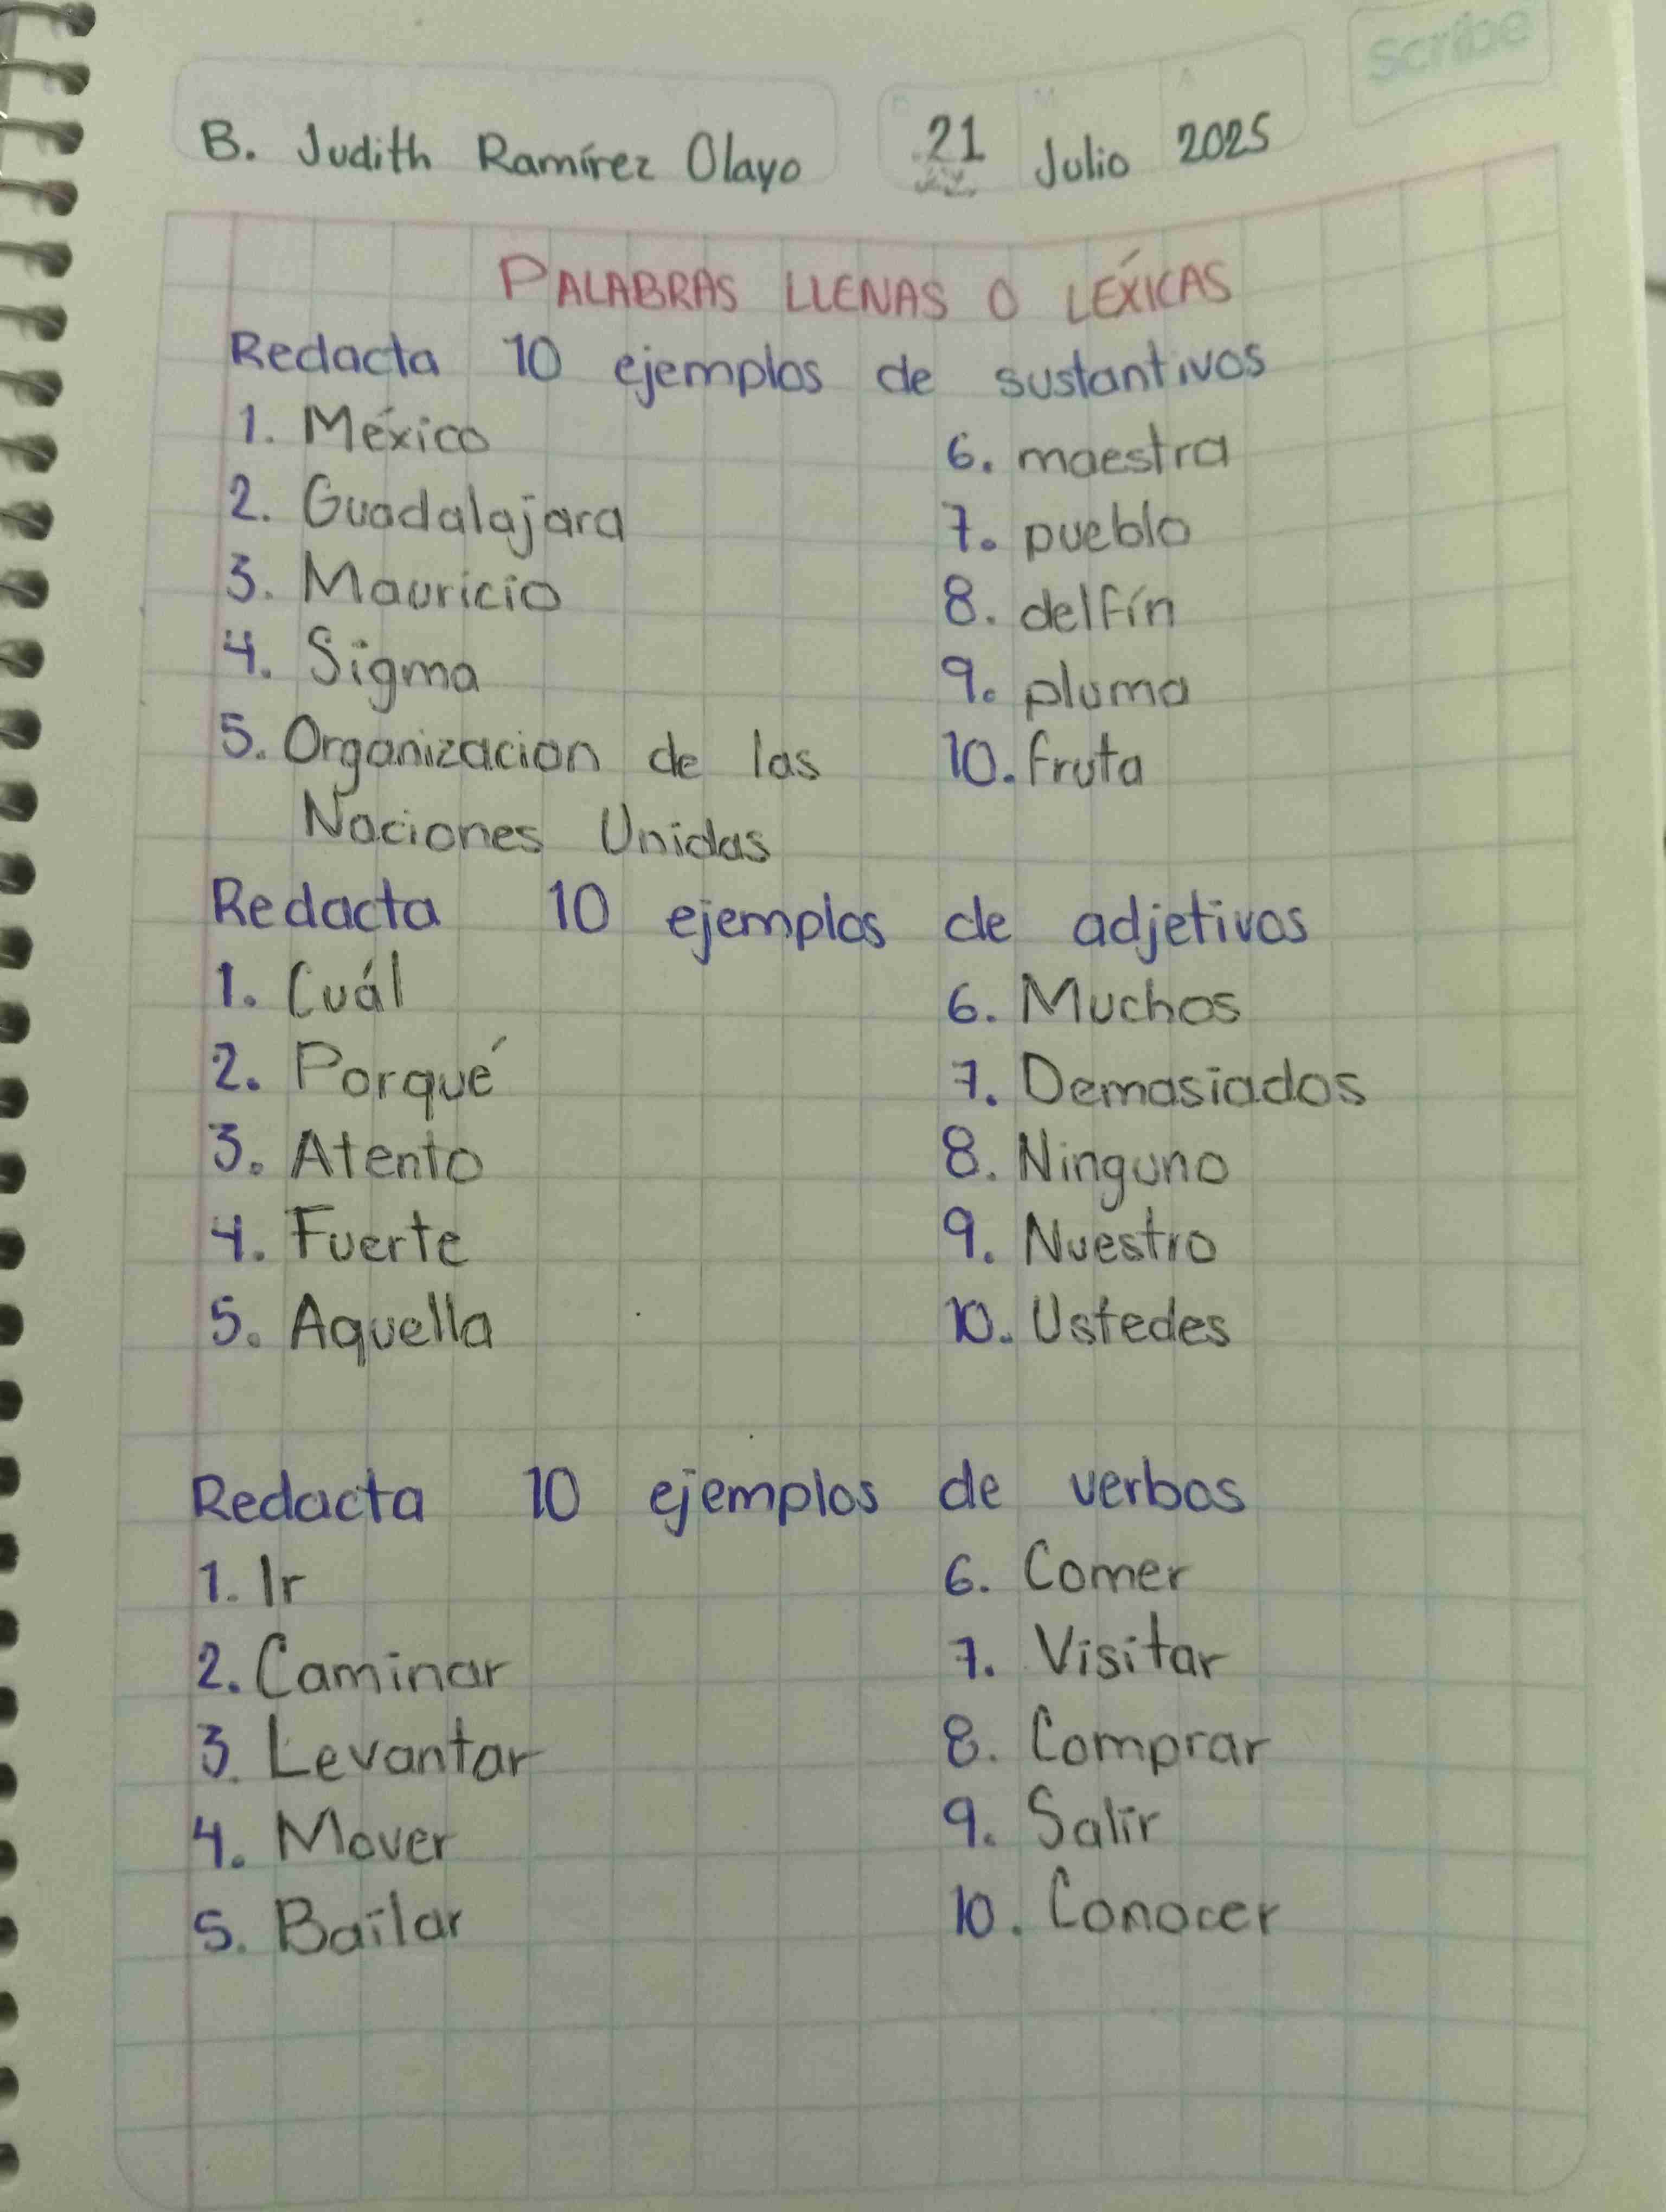 Scribe
B. Judith Ramírez Olayo 21 Julio 2025
D M A
PALABRAS LLENAS O LÉXICAS
Redacta 10 ejemplos de sustantivos
1. México
2. Guadalajara
3. Mauricio
4. Sigma
5. Organizacion de las
Naciones Unidas
6. maestra
7. pueblo
8. delfín
9. pluma
10. fruta
Redacta 10 ejemplos de adjetivos
1. Cuál
2. Porqué
3. Atento
4. Fuerte
5. Aquella
6. Muchos
7. Demasiados
8. Ninguno
9. Nuestro
10. Ustedes
Redacta 10 ejemplos de verbos
1. Ir
2. Caminar
3. Levantar
4. Mover
5. Bailar
6. Comer
7. Visitar
8. Comprar
9. Salir
10. Conocer